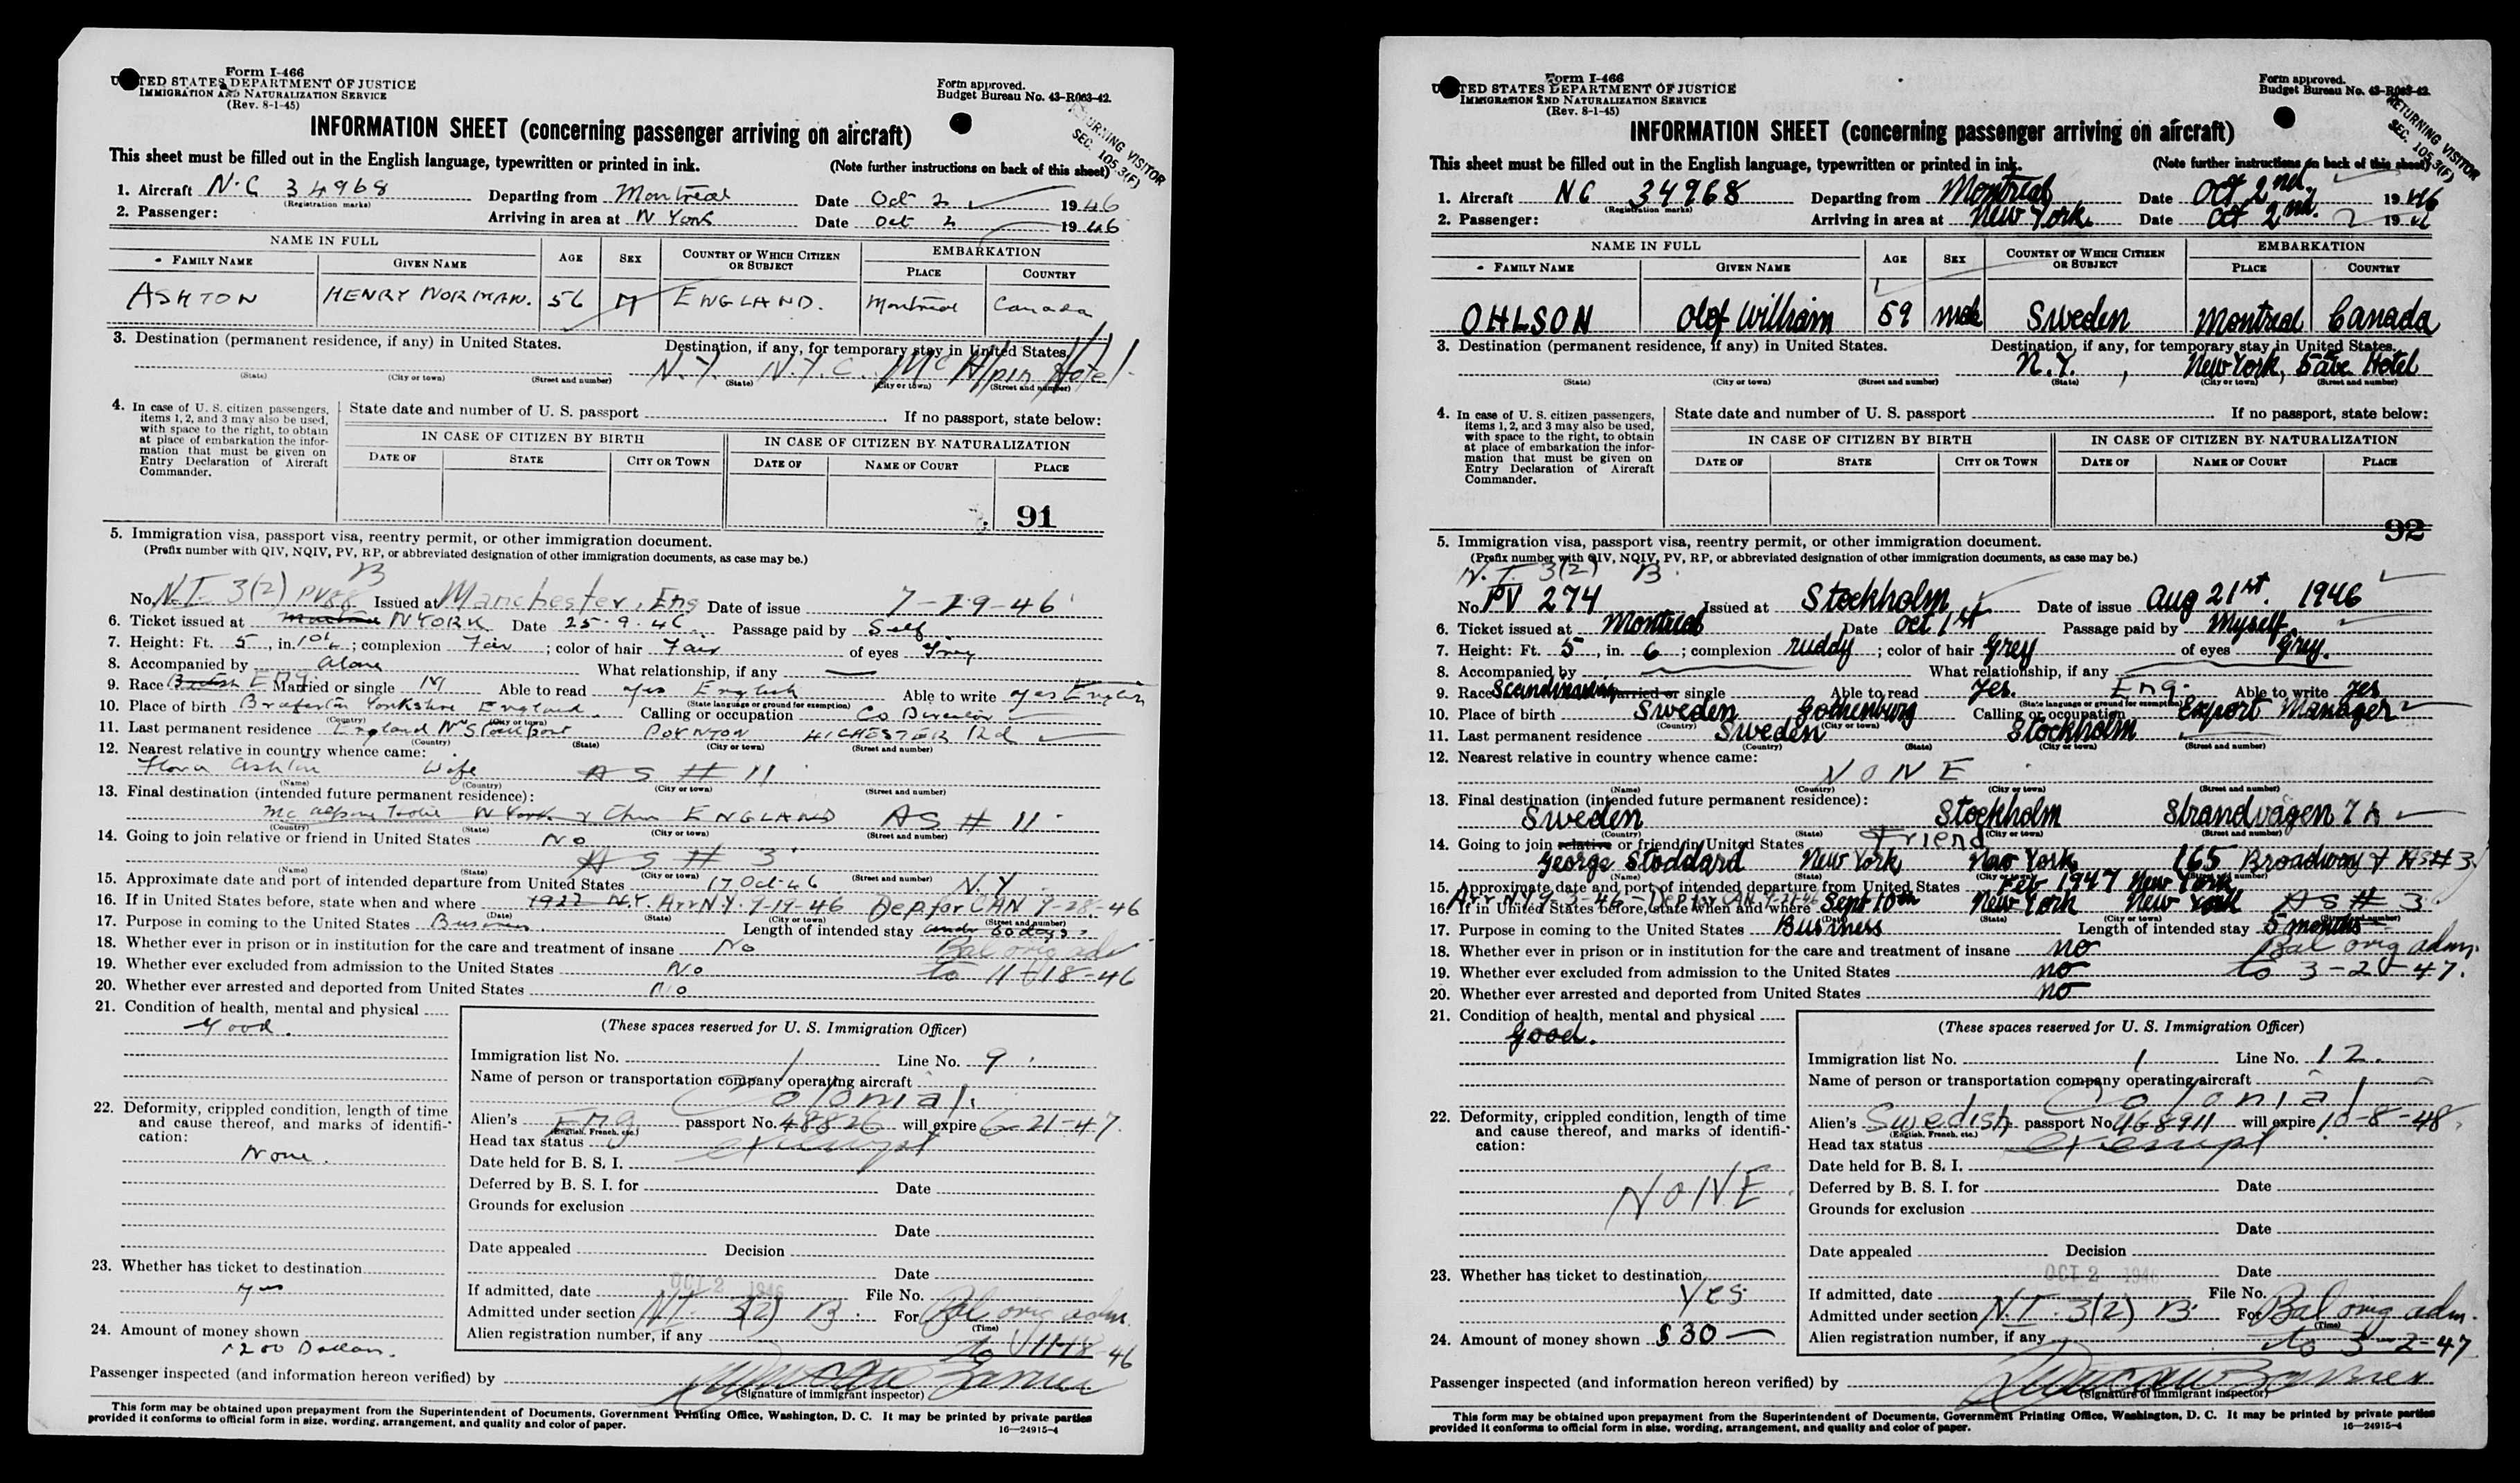 Form I-466
UNITED STATES DEPARTMENT OF JUSTICE
IMMIGRATION AND NATURALIZATION SERVICE
(Rev. 8-1-45)
Form approved.
Budget Bureau No. 43-R063-42.
RETURNING VISITOR
SEC. 105.3(F)
INFORMATION SHEET (concerning passenger arriving on aircraft)
This sheet must be filled out in the English language, typewritten or printed in ink. (Note further instructions on back of this sheet)
1. Aircraft NC 34968 Departing from Montreal Date Oct 2 1946
(Registration marks)
2. Passenger: Arriving in area at N York Date Oct 2 1946
NAME IN FULL AGE SEX COUNTRY OF WHICH CITIZEN OR SUBJECT EMBARKATION
FAMILY NAME GIVEN NAME PLACE COUNTRY
ASHTON HENRY NORMAN. 56 M ENGLAND. Montreal Canada
3. Destination (permanent residence, if any) in United States. Destination, if any, for temporary stay in United States
N.Y. N.Y.C. McAlpin Hotel
(State) (City or town) (Street and number) (State) (City or town) (Street and number)
4. In case of U. S. citizen passengers, items 1, 2, and 3 may also be used, with space to the right, to obtain at place of embarkation the information that must be given on Entry Declaration of Aircraft Commander.
State date and number of U. S. passport If no passport, state below:
IN CASE OF CITIZEN BY BIRTH IN CASE OF CITIZEN BY NATURALIZATION
DATE OF STATE CITY OR TOWN DATE OF NAME OF COURT PLACE
91
5. Immigration visa, passport visa, reentry permit, or other immigration document.
(Prefix number with QIV, NQIV, PV, RP, or abbreviated designation of other immigration documents, as case may be.)
No. N.I. 3(2) B PV88 Issued at Manchester, Eng Date of issue 7-19-46
6. Ticket issued at N YORK Date 25-9-46 Passage paid by Self
7. Height: Ft. 5, in. 10½; complexion Fair; color of hair Fair of eyes Grey
8. Accompanied by Alone What relationship, if any —
9. Race British Eng Married or single M Able to read yes English Able to write yes English
(State language or ground for exemption)
10. Place of birth Yorkshire England Calling or occupation Co Director
(Country) (City or town)
11. Last permanent residence England Nr Stockport POYNTON Rd
(Country) (State) (City or town) (Street and number)
12. Nearest relative in country whence came:
Flora Ashton Wife AS # 11
(Name) (Country) (City or town) (Street and number)
13. Final destination (intended future permanent residence):
ENGLAND AS # 11
(Country) (State) (City or town) (Street and number)
14. Going to join relative or friend in United States No
AS # 3
(Name) (State) (City or town) (Street and number)
15. Approximate date and port of intended departure from United States 17 Oct 46 N.Y.
16. If in United States before, state when and where 1922 N.Y. Arr N.Y. 7-19-46 Dep for CAN 7-28-46
(Date) (State) (City or town) (Street and number)
17. Purpose in coming to the United States Business Length of intended stay under 60 days
18. Whether ever in prison or in institution for the care and treatment of insane No Bal orig adm
19. Whether ever excluded from admission to the United States No to 11-18-46
20. Whether ever arrested and deported from United States No
21. Condition of health, mental and physical
Good.
22. Deformity, crippled condition, length of time and cause thereof, and marks of identification:
None.
23. Whether has ticket to destination
yes
24. Amount of money shown
200 Dollars.
(These spaces reserved for U. S. Immigration Officer)
Immigration list No. 1 Line No. 9
Name of person or transportation company operating aircraft
Colonial
Alien's Eng passport No. 48826 will expire 6-21-47
(English, French, etc.)
Head tax status exempt
Date held for B. S. I.
Deferred by B. S. I. for Date
Grounds for exclusion
Date
Date appealed Decision
Date
If admitted, date OCT 2 1946 File No.
Admitted under section N.I. 3(2) B For Bal orig adm.
(Time)
Alien registration number, if any to 11-18-46
Passenger inspected (and information hereon verified) by
(Signature of immigrant inspector)
This form may be obtained upon prepayment from the Superintendent of Documents, Government Printing Office, Washington, D. C. It may be printed by private parties
provided it conforms to official form in size, wording, arrangement, and quality and color of paper.
16—24915-4
Form I-466
UNITED STATES DEPARTMENT OF JUSTICE
IMMIGRATION AND NATURALIZATION SERVICE
(Rev. 8-1-45)
Form approved.
Budget Bureau No. 43-R063-42.
RETURNING VISITOR
SEC. 105.3(F)
INFORMATION SHEET (concerning passenger arriving on aircraft)
This sheet must be filled out in the English language, typewritten or printed in ink. (Note further instructions on back of this sheet)
1. Aircraft NC 34968 Departing from Montreal Date Oct 2nd. 1946
(Registration marks)
2. Passenger: Arriving in area at New York Date Oct 2nd. 1946
NAME IN FULL AGE SEX COUNTRY OF WHICH CITIZEN OR SUBJECT EMBARKATION
FAMILY NAME GIVEN NAME PLACE COUNTRY
OHLSON Olof William 59 male Sweden Montreal Canada
3. Destination (permanent residence, if any) in United States. Destination, if any, for temporary stay in United States.
N.Y., New York, Hotel
(State) (City or town) (Street and number) (State) (City or town) (Street and number)
4. In case of U. S. citizen passengers, items 1, 2, and 3 may also be used, with space to the right, to obtain at place of embarkation the information that must be given on Entry Declaration of Aircraft Commander.
State date and number of U. S. passport If no passport, state below:
IN CASE OF CITIZEN BY BIRTH IN CASE OF CITIZEN BY NATURALIZATION
DATE OF STATE CITY OR TOWN DATE OF NAME OF COURT PLACE
92
5. Immigration visa, passport visa, reentry permit, or other immigration document.
(Prefix number with QIV, NQIV, PV, RP, or abbreviated designation of other immigration documents, as case may be.)
N.I. 3(2) B
No. PV 274 Issued at Stockholm Date of issue Aug 21st. 1946
6. Ticket issued at Montreal Date Oct 1st Passage paid by Myself
7. Height: Ft. 5, in. 6; complexion ruddy; color of hair Grey of eyes Grey.
8. Accompanied by What relationship, if any
9. Race Scandinavian Married or single Able to read Yes. Eng. Able to write yes
(State language or ground for exemption)
10. Place of birth Sweden Gothenburg Calling or occupation Export Manager
(Country) (City or town)
11. Last permanent residence Sweden Stockholm
(Country) (State) (City or town) (Street and number)
12. Nearest relative in country whence came:
NONE
(Name) (Country) (City or town) (Street and number)
13. Final destination (intended future permanent residence):
Sweden Stockholm Strandvägen 7A
(Country) (State) (City or town) (Street and number)
14. Going to join relative or friend in United States Friend
George Stoddard New York New York 165 Broadway AS# 3
(Name) (State) (City or town) (Street and number)
15. Approximate date and port of intended departure from United States Feb 1947 New York
Arr NY 9-3-46 – Dep for CAN 9-21-46
16. If in United States before, state when and where Sept 10th New York New York AS # 3
(Date) (State) (City or town) (Street and number)
17. Purpose in coming to the United States Business Length of intended stay 5 months
18. Whether ever in prison or in institution for the care and treatment of insane no Bal orig adm.
19. Whether ever excluded from admission to the United States no to 3-2-47.
20. Whether ever arrested and deported from United States no
21. Condition of health, mental and physical
Good.
22. Deformity, crippled condition, length of time and cause thereof, and marks of identification:
NONE
23. Whether has ticket to destination
Yes
24. Amount of money shown $30—
(These spaces reserved for U. S. Immigration Officer)
Immigration list No. 1 Line No. 12.
Name of person or transportation company operating aircraft
Colonial
Alien's Swedish passport No. 468911 will expire 10-8-48
(English, French, etc.)
Head tax status exempt
Date held for B. S. I.
Deferred by B. S. I. for Date
Grounds for exclusion
Date
Date appealed Decision
OCT 2 1946 Date
If admitted, date File No.
Admitted under section N.I. 3(2) B For Bal orig adm.
(Time)
Alien registration number, if any to 3-2-47
Passenger inspected (and information hereon verified) by
(Signature of immigrant inspector)
This form may be obtained upon prepayment from the Superintendent of Documents, Government Printing Office, Washington, D. C. It may be printed by private parties
provided it conforms to official form in size, wording, arrangement, and quality and color of paper.
16—24915-4